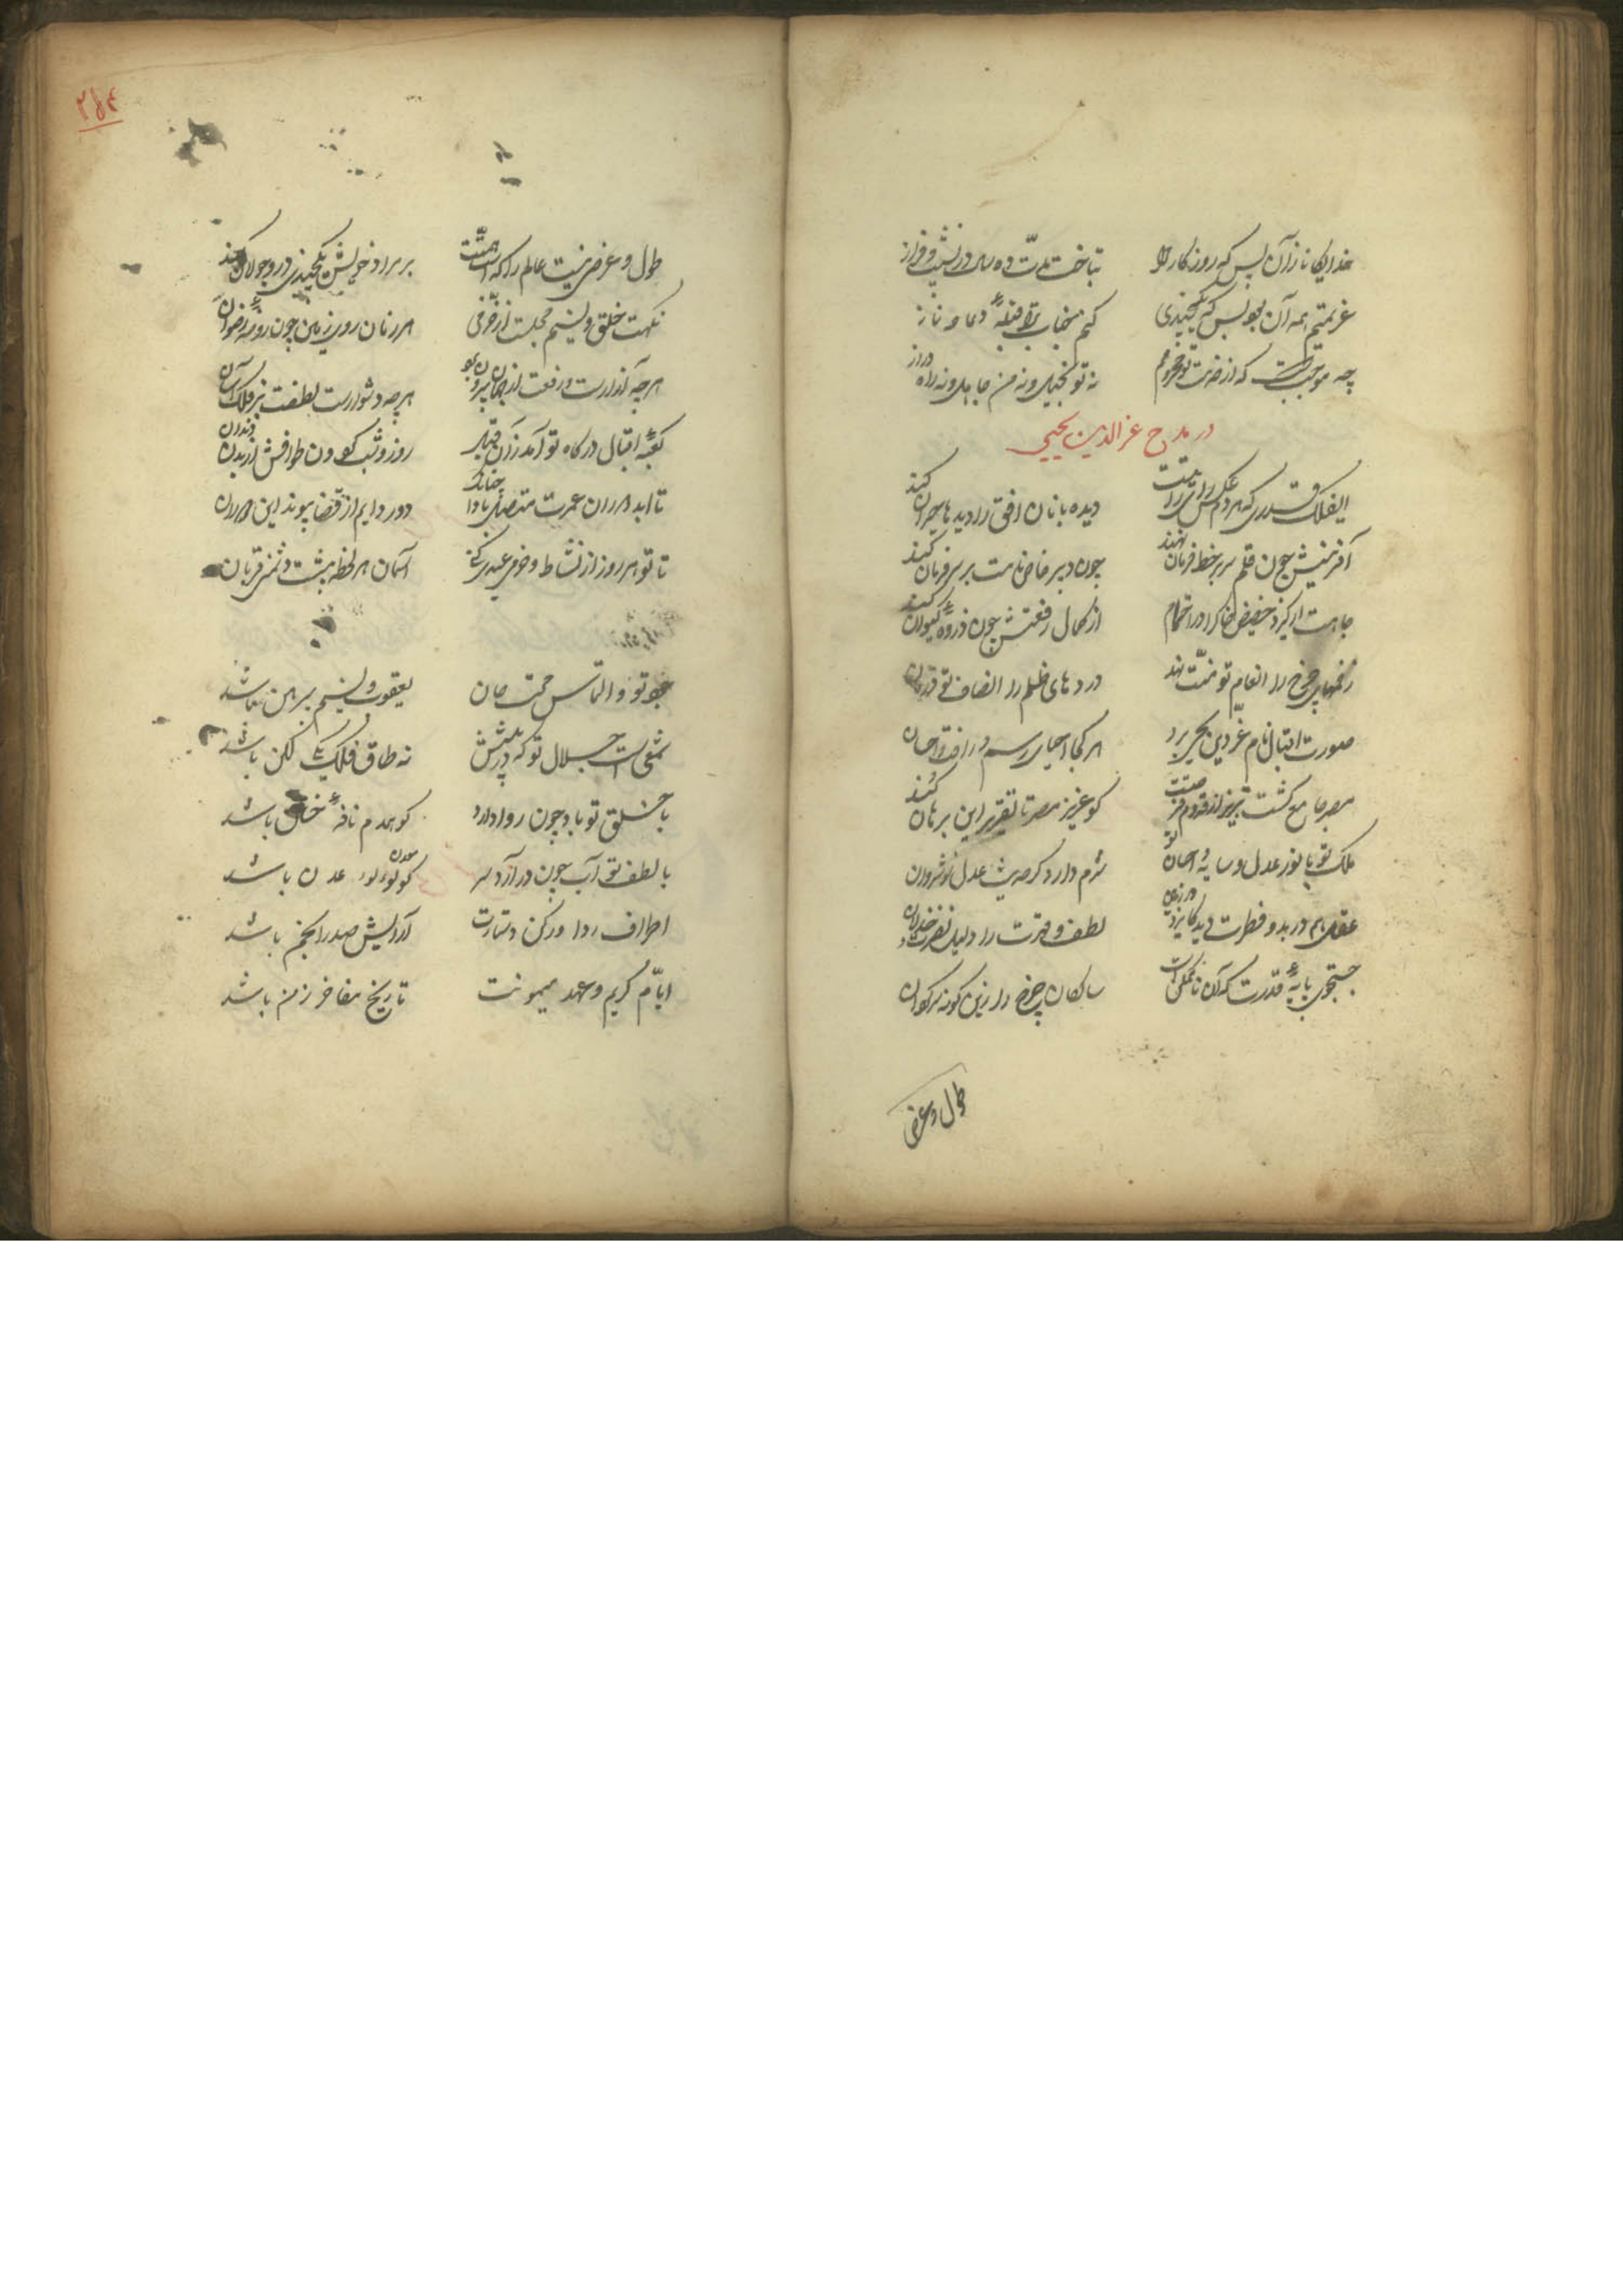 خدایگانا زان پس که روزگار مرا
بتاخت مدت ده سال در نشیب و فراز
عزیمتم همه آن بود پس که یکچندی
کنم جناب ترا قبلهٔ دعا و نماز
چه موجبست که از خدمت تو محرومم
نه تو بخیلی و نه من جاهل و نه راه دراز
در مدح عزالدین یحیی
ای فلک قدری که هر دم عکس رای روشنت
دیده بانان افق را دیدها حیران کند
آفرینش چون قلم سر بر خط فرمان نهند
چون دبیر خاص نامت بر سر فرمان کند
جاهت ار گیرد حضیض خاک را در اهتمام
از کمال رفعتش چون ذروهٔ کیوان کند
زخمهای چرخ را انعام تو منت نهد
دردهای ظلم را انصاف تو درمان
صورت اقبال نام عز دین یحیی برد
هر کجا احیای رسم رافت و احسان
مصر جامع گشت تبریز از قدوم
کو عزیز مصر تا تقریر این برهان کند
ملک تو با نور عدل و سایهٔ احسان تو
شرم دارد گر حدیث عدل نوشروان
عقل هم در بدو فطرت دید کایزد در ازل
لطف و قهرت را دلیل نصرت و خذلان
جستجوی پایهٔ قدرت که آن ناممکن است
ساکنان چرخ را زین گونه سرگردان
طول و عرض
۲۵۴
طول و عرضی نیست عالم را که اسب همتت
بر مراد خویش یکچندی درو جولان کند
نکهت خلق و نسیم مجلست از خرمی
هر زمان روی زمین چون روضهٔ رضوان
هرچه آن رازست و رفعت از جهان بیرون
هرچه دشوارست لطفت بر فلک آسان
کعبهٔ اقبال درگاه تو آمد زان قبل
روز و شب گردون طوافش از بن دندان
تا ابد دوران عمرت متصل بادا چنانک
دور دایم از قضا پیوند این دوران
تا تو هر روز از نشاط و خرمی عیدی کنی
آسمان هر لحظه بیشت دشمنی قربان
جود تو و التماس محنت جان
یعقوب و نسیم پیرهن باشد
شمعی است جلال تو که در پیشش
نه طاق فلک یکی لگن باشد
با خلق تو باد چون روا دارد
کو همدم نافهٔ ختن باشد
با لطف تو آب چون درآرد سر
کو لولو عدن باشد
اطراف ردا و رکن دستارت
آرایش صدر انجمن باشد
ایام کریم و عهد میمونت
تاریخ مفاخر زمن باشد